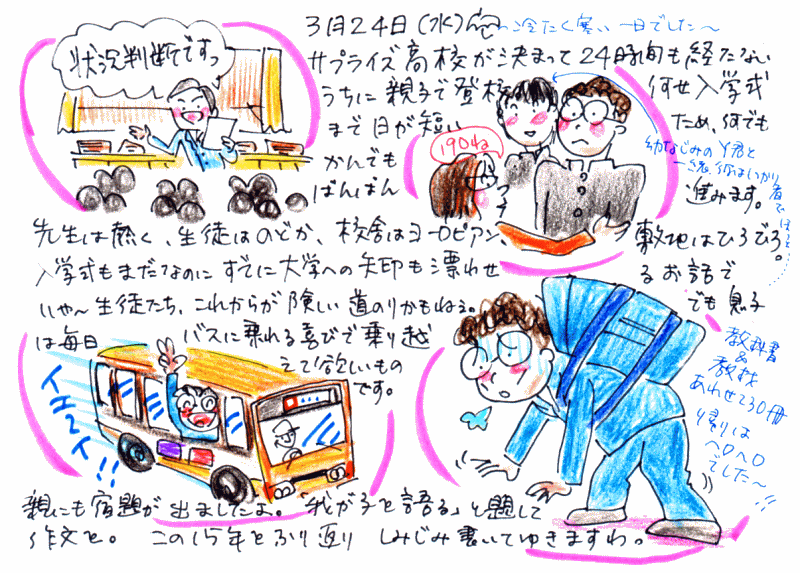 3月24日(水) 冷たく寒い一日でした～
状況判断ですっ
サプライズ高校が決まって24時間も経たない
うちに親子で登校 何せ入学式
まで日が短い ため、何でも
かんでも
ばんばん 進みます。
幼なじみのY君と
一緒。
先生は熱く、生徒はのどか、校舎はヨーロピアン、敷地はひろびろ。
入学式もまだなのに すでに大学への矢印も漂わせるお話で
いや～生徒たち、これからが険しい道のりかもねぇ。でも息子
は毎日 バスに乗れる喜びで乗り越
えて欲しいもの
です。
イエーイ!!
教科書
&
教材
あわせて30冊
帰りは
ヘロヘロ
でした～!!
親にも宿題が出ましたよ。「我が子を語る」と題して
作文を。この15年をふり返り しみじみ書いてゆきますわ。